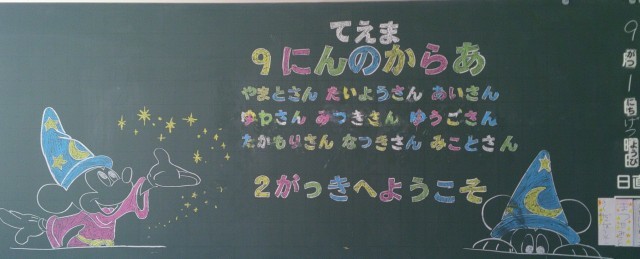 てえま
9にんのからあ
やまとさん たいようさん あいさん
ゆわさん みつきさん ゆうごさん
たかもりさん なつきさん みことさん
2がっきへようこそ
9
がつ
1
にち
ようび
日直